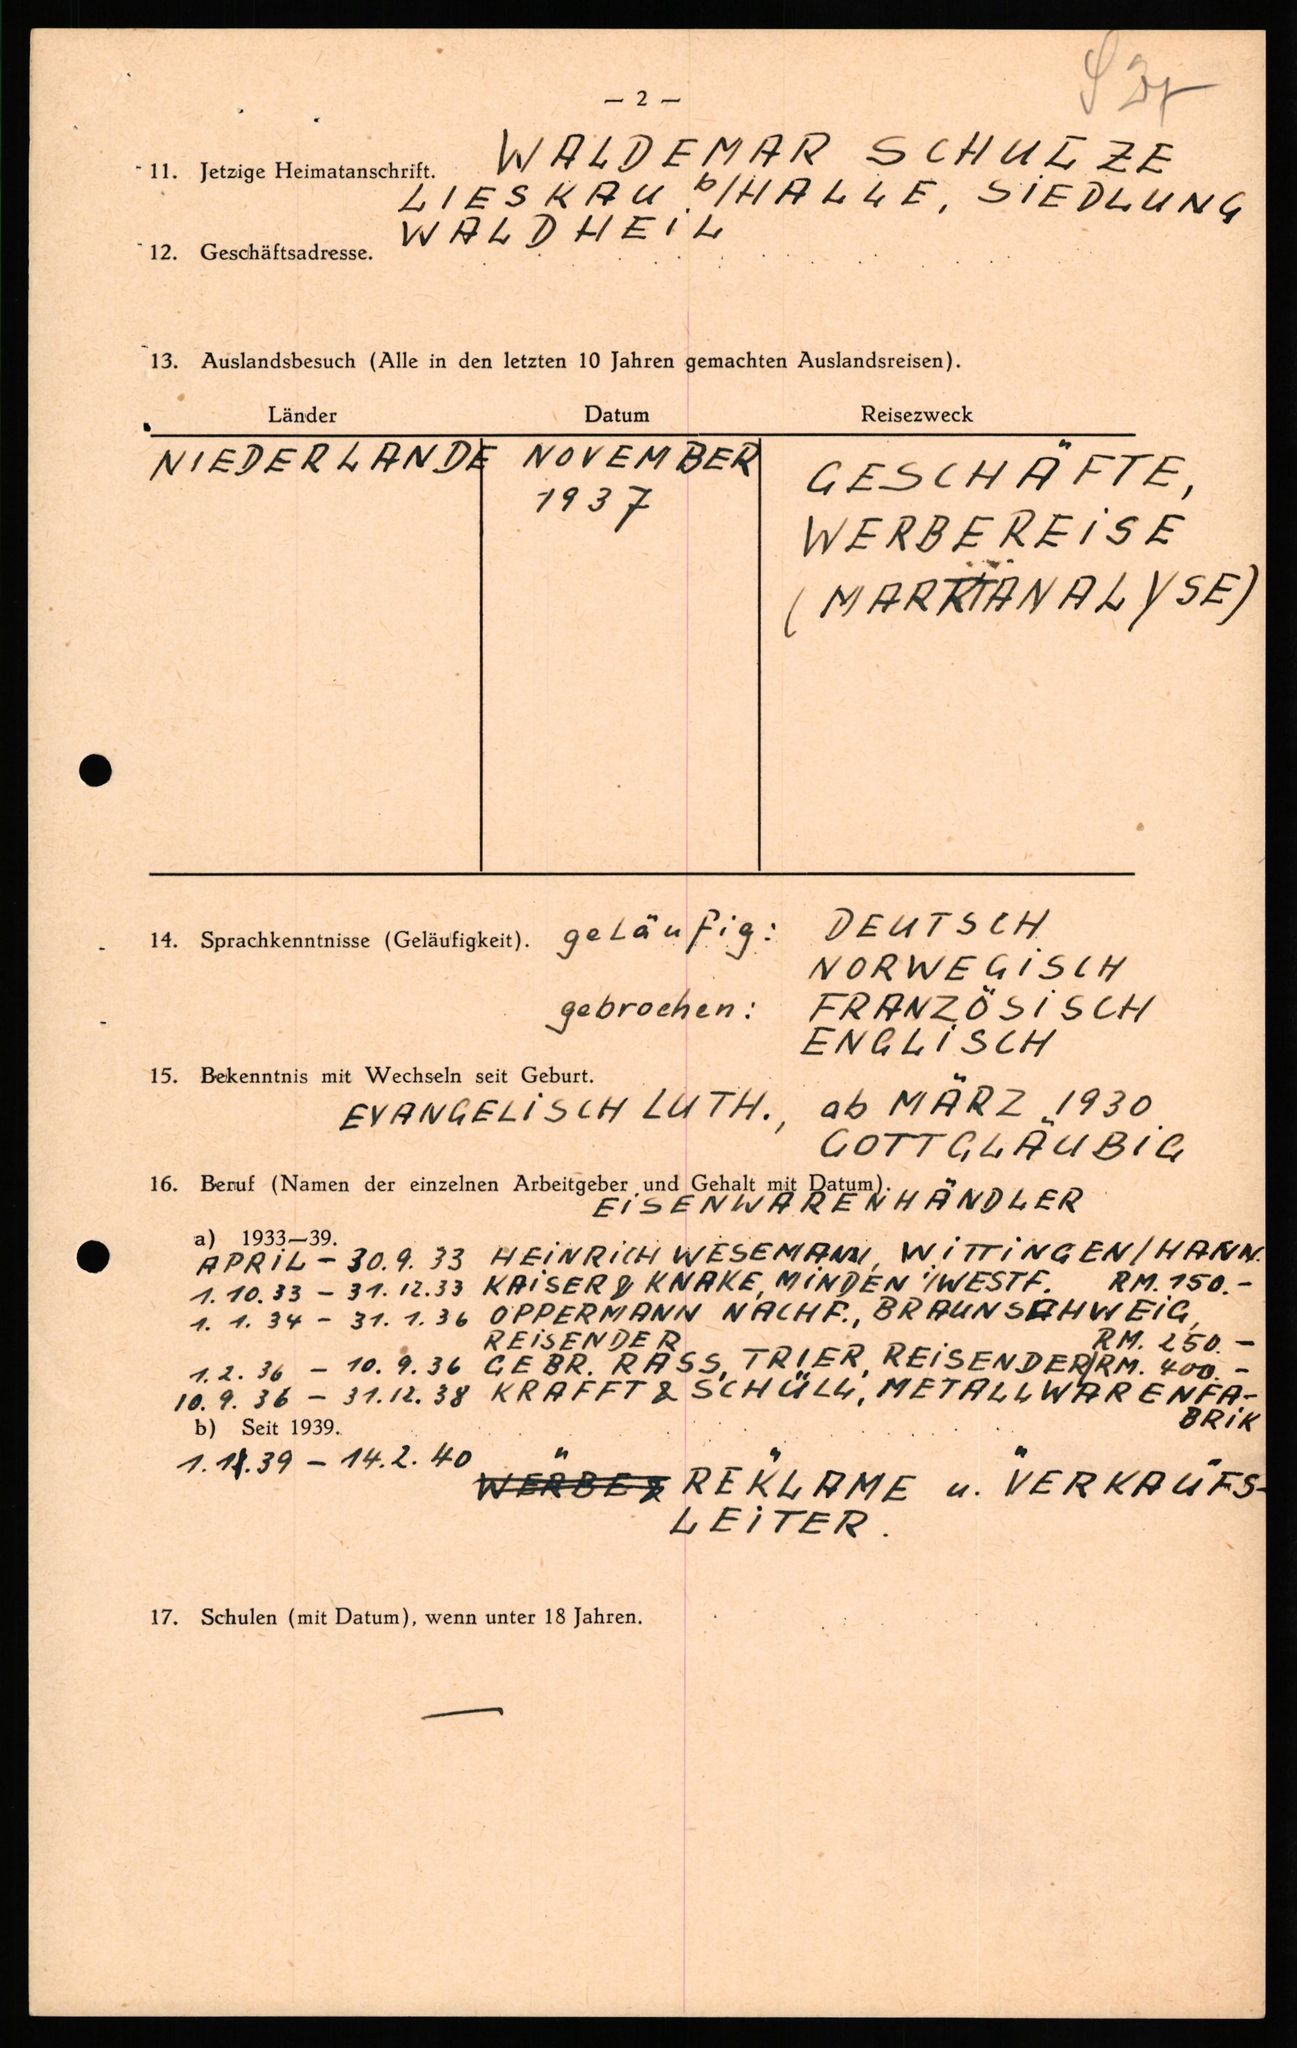 — 2 —
11. Jetzige Heimatanschrift. WALDEMAR SCHULZE
LIESKAU b/HALLE, SIEDLUNG
WALDHEIL
12. Geschäftsadresse.
13. Auslandsbesuch (Alle in den letzten 10 Jahren gemachten Auslandsreisen).
Länder Datum Reisezweck
NIEDERLANDE NOVEMBER 1937 GESCHÄFTE,
WERBEREISE
(MARKTANALYSE)
14. Sprachkenntnisse (Geläufigkeit). geläufig: DEUTSCH
NORWEGISCH
gebrochen: FRANZÖSISCH
ENGLISCH
15. Bekenntnis mit Wechseln seit Geburt.
EVANGELISCH LUTH., ab MÄRZ 1930
GOTTGLÄUBIG
16. Beruf (Namen der einzelnen Arbeitgeber und Gehalt mit Datum).
EISENWARENHÄNDLER
a) 1933—39.
APRIL - 30.9.33 HEINRICH WESEMANN, WITTINGEN/HANN.
1.10.33 - 31.12.33 KAISER & KNAKE, MINDEN i/WESTF. RM. 150.-
1.1.34 - 31.1.36 OPPERMANN NACHF., BRAUNSCHWEIG,
REISENDER RM. 250.-
1.2.36 - 10.9.36 GEBR. RASS, TRIER, REISENDER/RM. 400.-
10.9.36 - 31.12.38 KRAFFT & SCHÜLL, METALLWARENFA-
BRIK
b) Seit 1939.
1.1.39 - 14.2.40 " REKLAME u. VERKAUFS-
LEITER.
17. Schulen (mit Datum), wenn unter 18 Jahren.
—